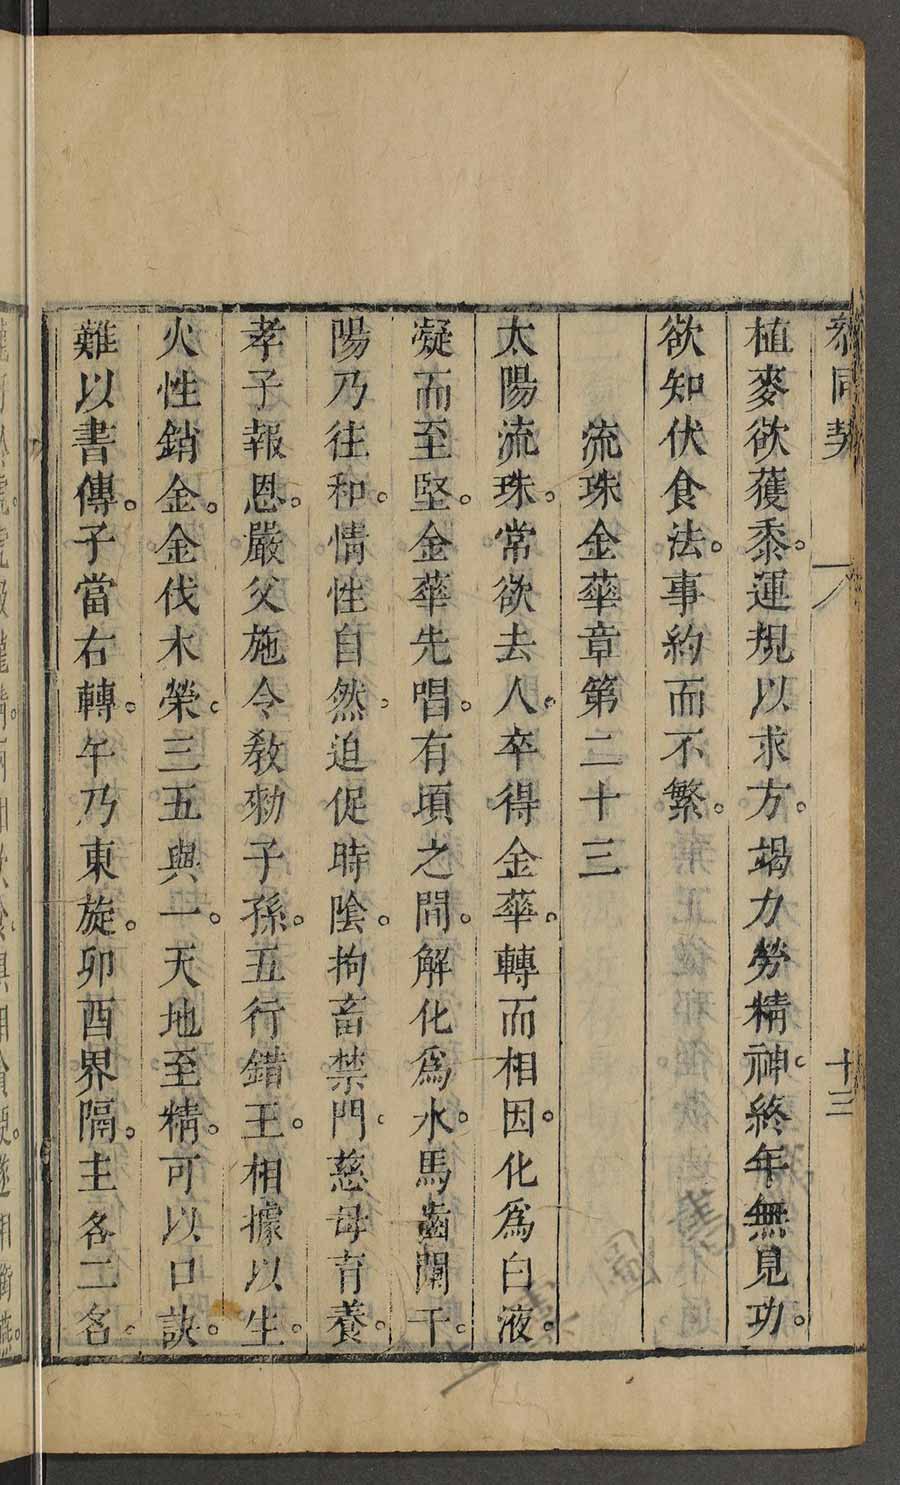 參同契 十三
植麥欲獲黍。運規以求方。竭力勞精神。終年無見功。
欲知伏食法。事約而不繁。
流珠金華章第二十三
太陽流珠。常欲去人。卒得金華。轉而相因。化爲白液。
凝而至堅。金華先唱。有頃之間。解化爲水。馬齒闌干。
陽乃往和。情性自然。迫促時陰。拘畜禁門。慈母育養。
孝子報恩。嚴父施令教勑子孫。五行錯王。相據以生。
火性銷金。金伐木榮。三五與一。天地至精。可以口訣。
難以書傳。子當右轉。午乃東旋。卯酉界隔。主客二名。